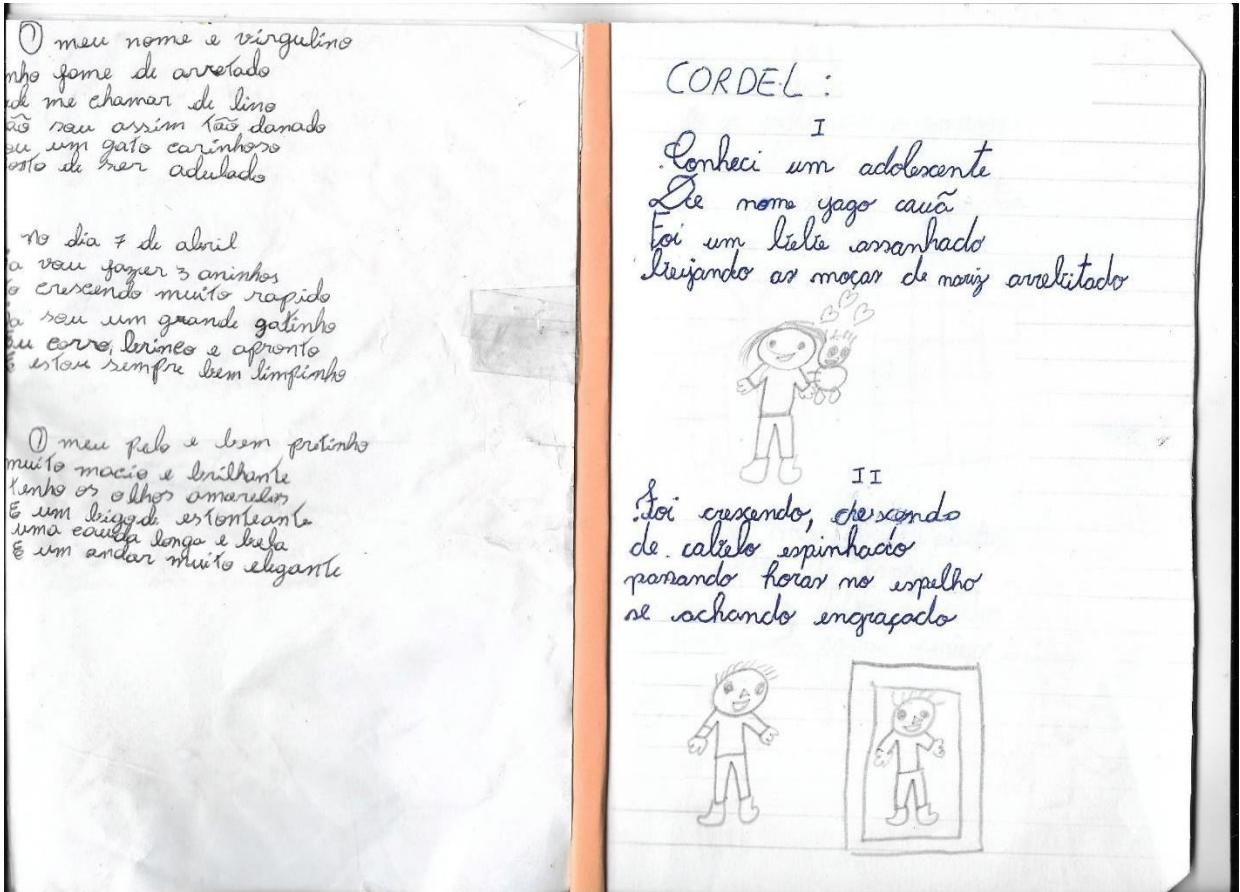 O meu nome e virgulino
nho fame de arretado
de me chamar de lino
ão sou assim tão danado
ou um gato carinhoso
osto de ser adulado
no dia 7 de abril
a vou fazer 3 aninhos
o crescendo muito rapido
a sou um grande gatinho
Eu corro, brinco e apronto
E estou sempre bem limpinho
O meu pelo e bem pretinho
muito macio e brilhante
tenho os olhos amarelos
E um bigode estonteante
uma cauda longa e bela
E um andar muito elegante
CORDEL :
I
Conheci um adolescente
De nome yago cauã
Foi um bebe assanhado
beijando as moças de nariz arrebitado
II
Foi crescendo, crescendo
de cabelo espinhacio
passando horas no espelho
se achando engraçado